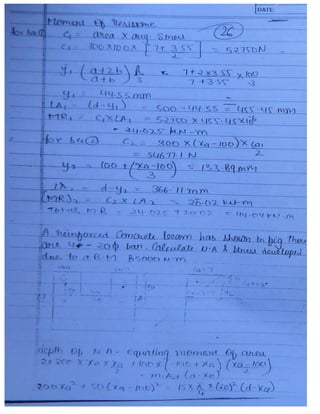 DATE:
26
Moment Of Resistance
for bec① C₁ = area X avg Stress
C₁ = 100X100 X [7+3.55 / 2] = 52750N
y₁ (a+2b / a+b) h/3 = 7+2X3.55 / 7+3.55 X 100/3
y₁ = 44.55mm
LA₁ = (d-y₁) = 500-44.55 = 455.45 mm
MR₁ = C₁XLA₁ = 52750 X 455.45X10⁶
= 24.025 KN-m
for bec② C₂ = 300 X (xa-100) X ca₁ / 2
= 54677.1 N
y₂ = 100 + (xa-100 / 3) = 133.89mm
LA₂ = d-y₂ = 366.11mm
(MR)₂ = C₂ X LA₂ = 20.02 KN-m
Total MR = 24.025 + 20.02 = 44.04KN-m
A reinforced Concrete beam has shown in fig there
are 4 - 20ϕ bar. Calculate N.A & stress developed
due to a B.M 85000 N-m
depth Of N.A - Equating moment Of area
2X 200 X xa X xa/2 + 100X (-100+xa) (xa-100 / 2)
= m.As+ (d-xa)
200xa² + 50 (xa-100)² = 15X π/4 X(20)² (d-xa)